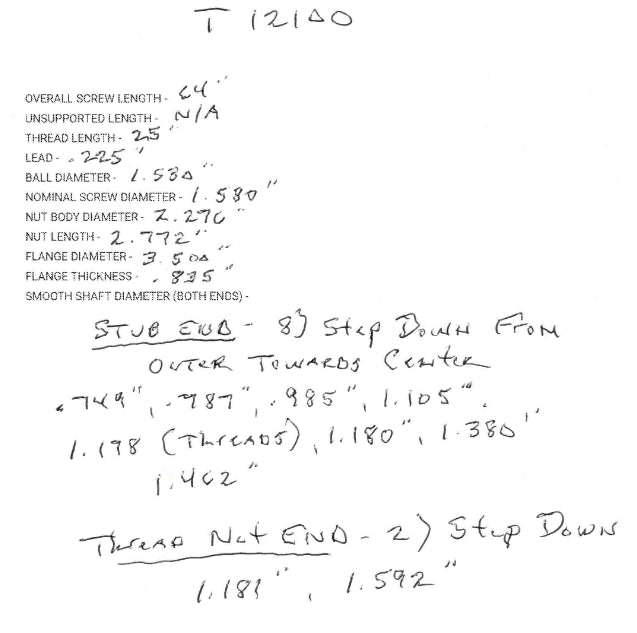 T 12100
OVERALL SCREW LENGTH - 64"
UNSUPPORTED LENGTH - N/A
THREAD LENGTH - 25"
LEAD - .225"
BALL DIAMETER - 1.530"
NOMINAL SCREW DIAMETER - 1.580"
NUT BODY DIAMETER - 2.276"
NUT LENGTH - 2.772"
FLANGE DIAMETER - 3.500"
FLANGE THICKNESS - .835"
SMOOTH SHAFT DIAMETER (BOTH ENDS) -
STUB END - 8) Step Down From
OUTER TOWARDS Center
.749", .787", .985", 1.105",
1.198 (THREADS), 1.180", 1.380"
1.462"
Thread Nut END - 2) Step Down
1.181", 1.592"